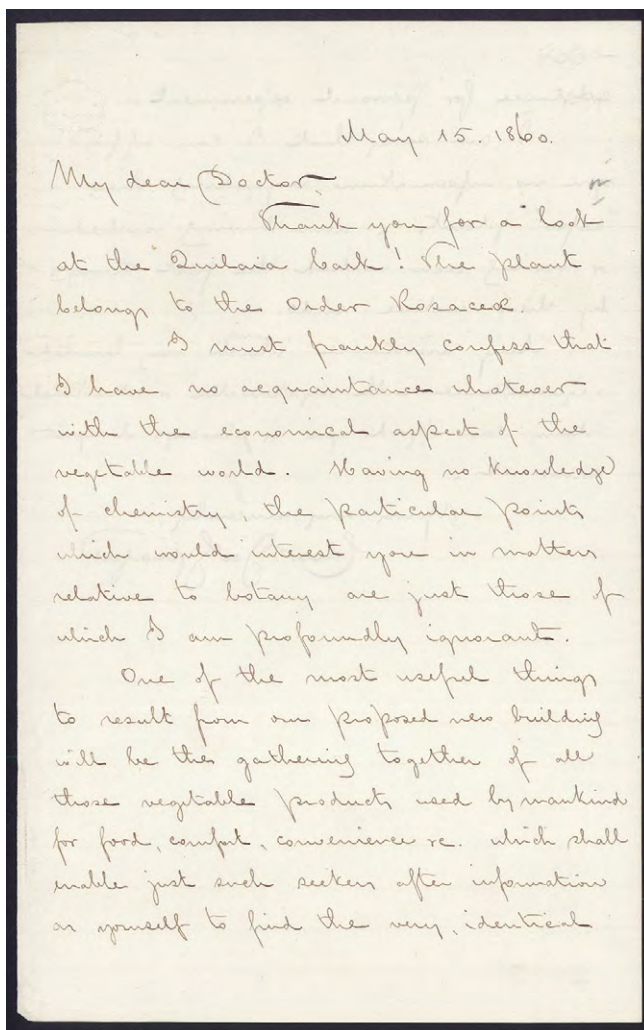 May 15. 1860.
My dear Doctor,
Thank you for a look
at the Quilaia bark! The plant
belongs to the Order Rosaceæ.
I must frankly confess that
I have no acquaintance whatever
with the economical aspect of the
vegetable world. Having no knowledge
of chemistry, the particular points
which would interest you in matters
relative to botany are just those of
which I am profoundly ignorant.
One of the most useful things
to result from our proposed new building
will be the gathering together of all
those vegetable products used by mankind
for food, comfort, convenience &c. which shall
enable just such seekers after information
as yourself to find the very, identical